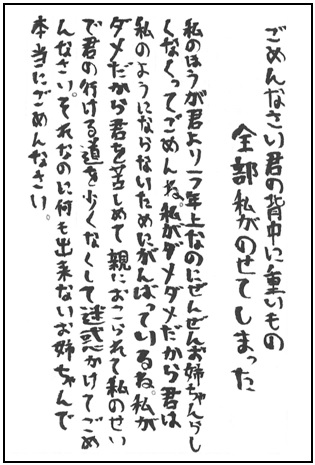 ごめんなさい君の背中に重いもの
全部私がのせてしまった
私のほうが君より一つ年上なのにぜんぜんお姉ちゃんらし
くなくってごめんね。私がダメダメだから君は
私のようにならないためにがんばっているね。私が
ダメだから君を苦しめて親におこられて私のせい
で君の行ける道を少くなくして迷惑かけてごめ
んなさい。それなのに何も出来ないお姉ちゃんで
本当にごめんなさい。